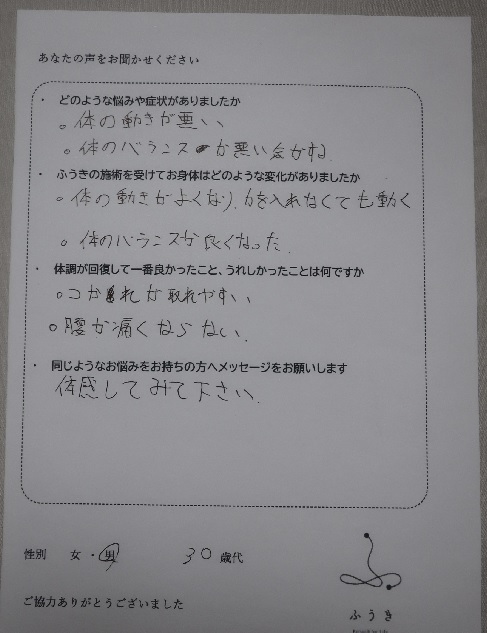 あなたの声をお聞かせください
・ どのような悩みや症状がありましたか
。体の動きが悪い
。体のバランスが悪い気がする
・ ふうきの施術を受けてお身体はどのような変化がありましたか
。体の動きがよくなり、力を入れなくても動く
。体のバランスが良くなった。
・ 体調が回復して一番良かったこと、うれしかったことは何ですか
。つかれが取れやすい
。腰が痛くならない。
・ 同じようなお悩みをお持ちの方へメッセージをお願いします
体感してみて下さい。
性別 女・男 30歳代
ご協力ありがとうございました
ふうき